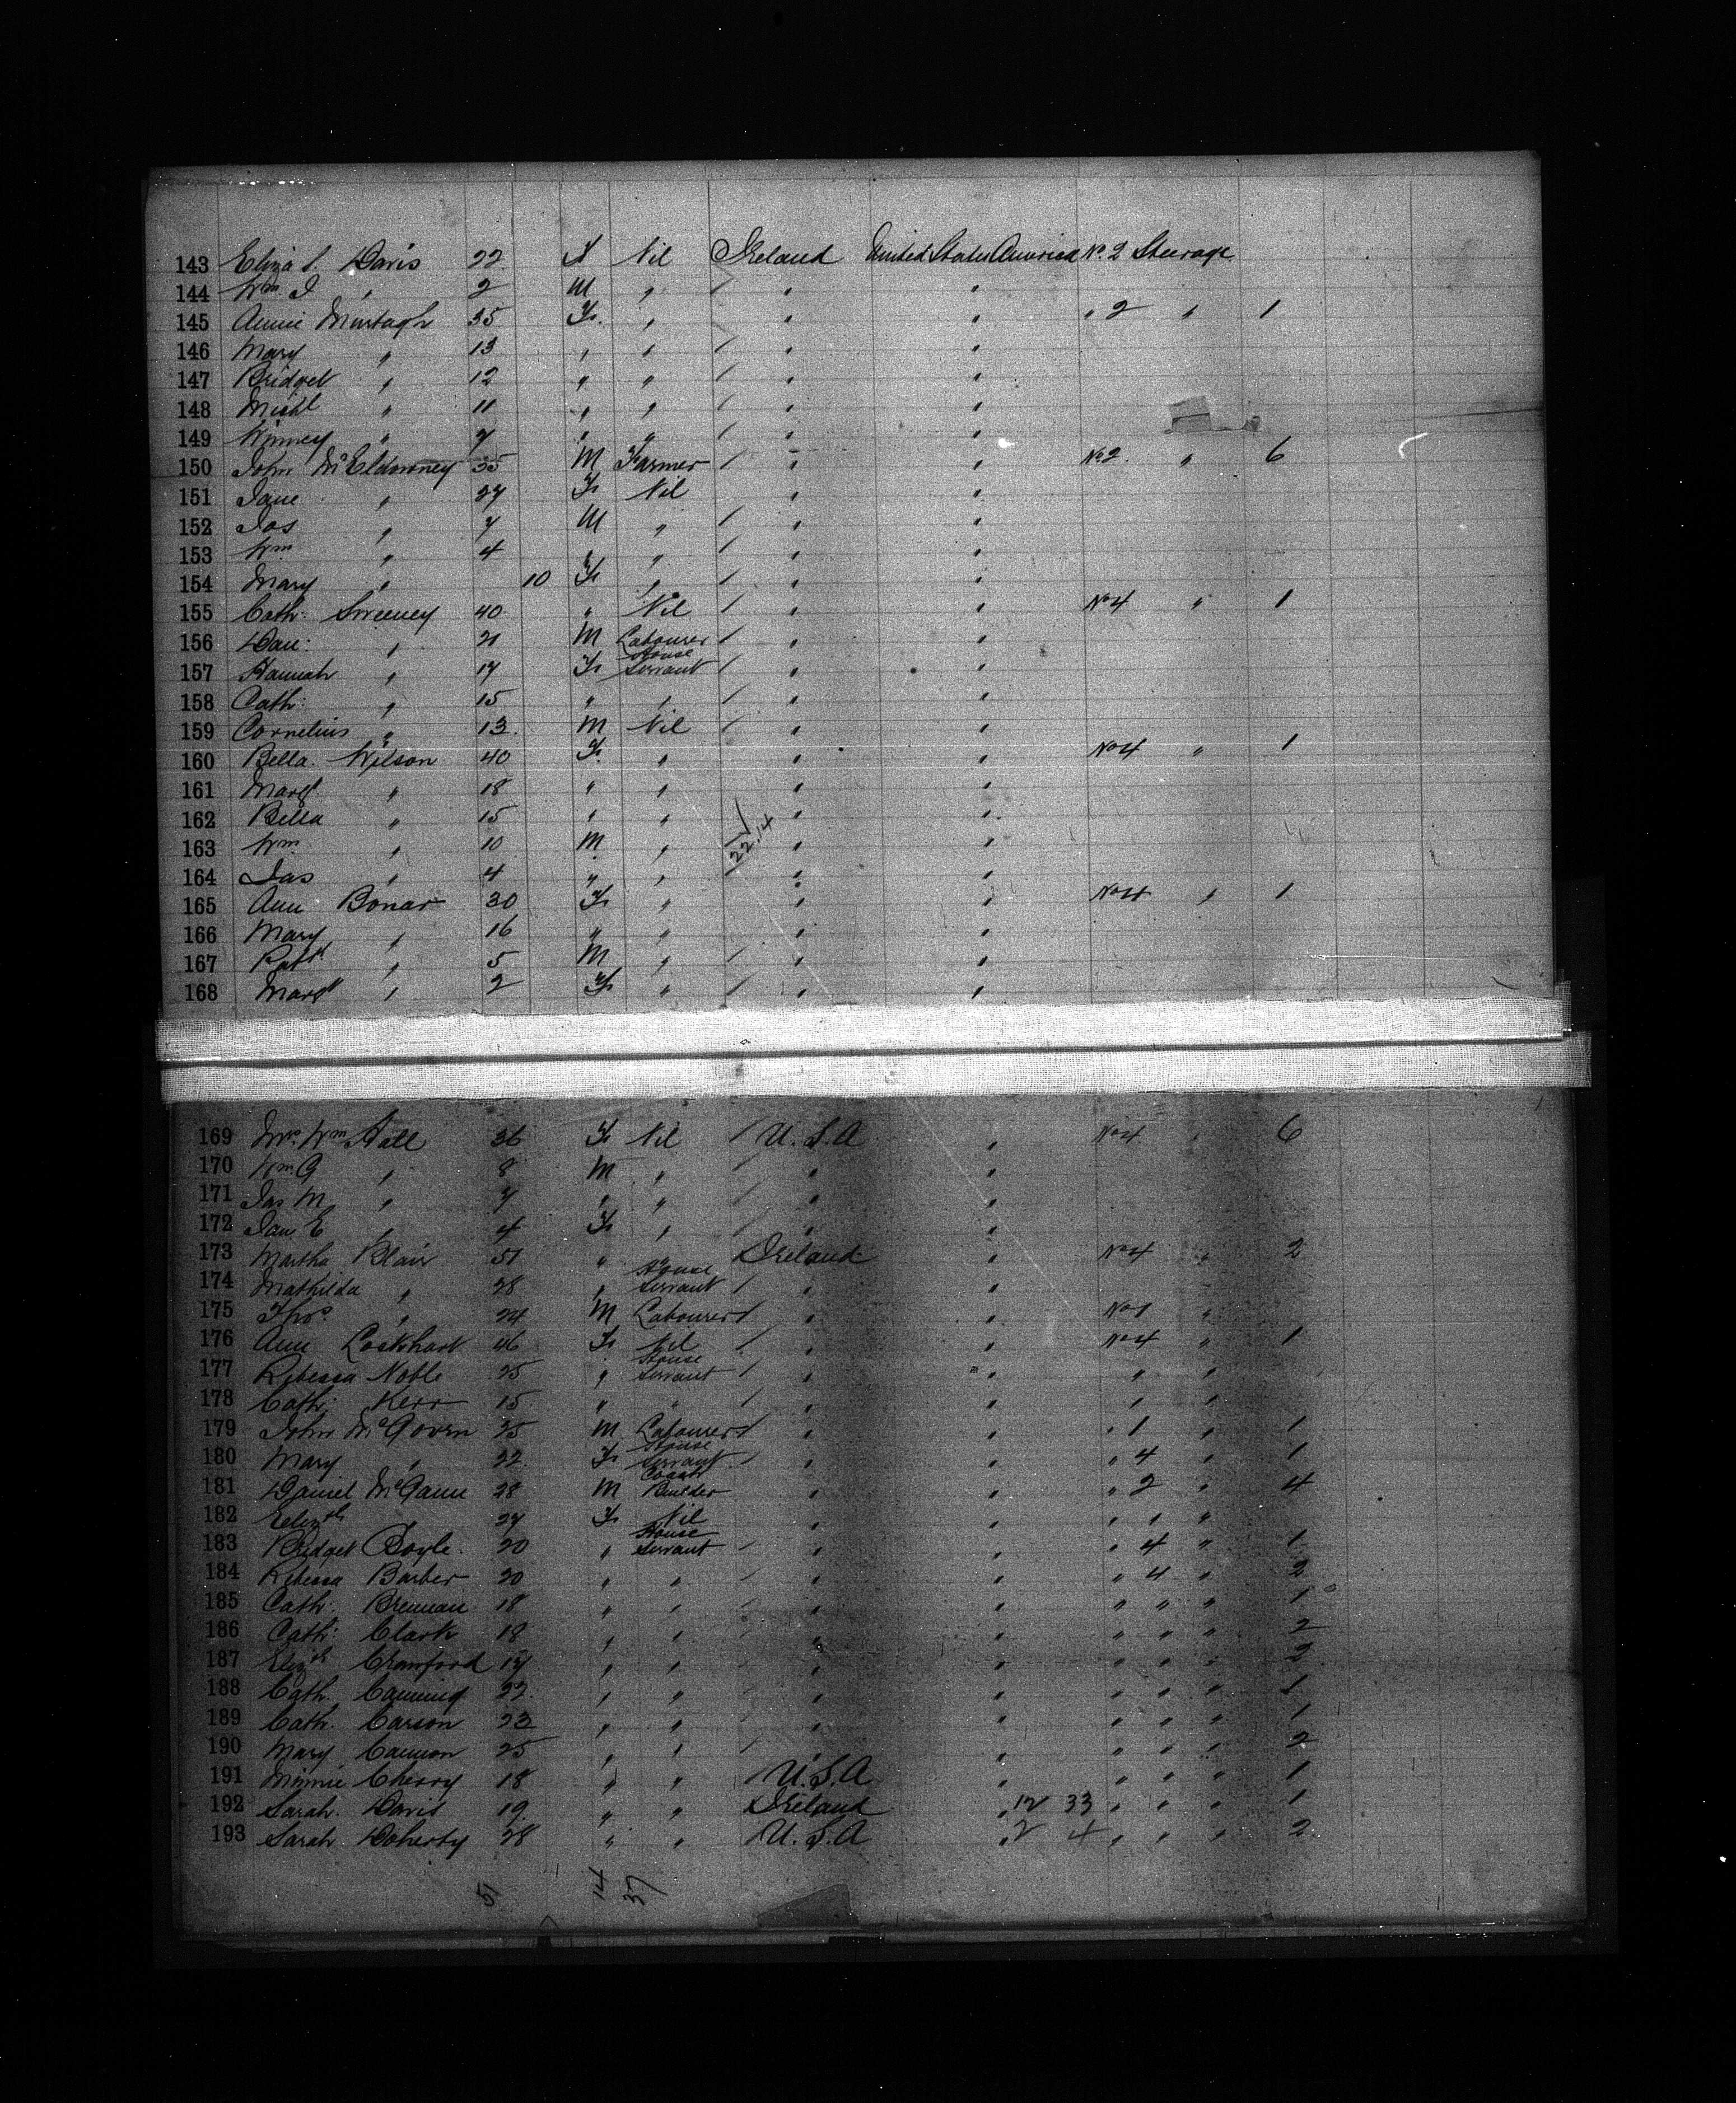 143 Eliza S. Davis 22 F Nil Ireland United States America No. 2 Steerage
144 Wm. J " 2 M " " "
145 Annie Murtagh 35 F. " " " " 2 " 1
146 Mary " 13 " " " "
147 Bridget " 12 " " " "
148 Michl " 11 " " " "
149 Winney " 7 " " " "
150 John McEldowney 35 M Farmer " " No 2. " 6
151 Jane " 27 F Nil " "
152 Jas " 7 M " " "
153 Wm " 4 " " " "
154 Mary " 10 F " " "
155 Cath: Sweeney 40 " Nil " " No 4 " 1
156 Dan: " 21 M Labourer " "
157 Hannah " 17 F House Servant " "
158 Cath: " 15 " " " "
159 Cornelius " 13 M Nil " "
160 Bella Wilson 40 F. " " " No 4 " 1
161 Margt " 18 " " " "
162 Bella " 15 " " " "
163 Wm. " 10 M " 22/14 " "
164 Jas " 4 " " " "
165 Ann Bonar 30 F " " " No 4 " 1
166 Mary " 16 " " " "
167 Patk " 5 M " " "
168 Margt " 2 F " " "
169 Mrs Wm Hall 36 F Nil U.S.A " No 4 " 6
170 Wm G " 8 M " " "
171 Jas M " 7 " " " "
172 Jan E " 4 F " " "
173 Martha Blair 51 " " Ireland " No 4 " 2
174 Mathilda " 28 " House Servant " "
175 Thos " 24 M Labourer " " No 1 "
176 Ann Lockhart 46 F Nil " " No 4 " 1
177 Rebecca Noble 25 " House Servant " " " "
178 Cath: Kerr 15 " " " " " "
179 John McGovern 35 M Labourer " " " 1 " 1
180 Mary " 22 F House Servant " " " 4 " 1
181 Daniel McGann 28 M Coach Builder " " " 2 " 4
182 Elizth " 27 F Nil " " " " "
183 Bridget Boyle. 20 " House Servant " " " 4 " 1
184 Rebecca Barber 20 " " " " " 4 " 2
185 Cath: Brennan 18 " " " " " " " 1
186 Cath: Clark 18 " " " " " " " 2
187 Elizth Crawford 17 " " " " " " " 2
188 Cath. Canning 22 " " " " " " " 1
189 Cath. Carson 23 " " " " " " " 1
190 Mary Cannon 25 " " " " " " " 2
191 Minnie Cherry 18 " " U.S.A " " " " 1
192 Sarah. Davis 19 " " Ireland " 12 33 " " " 1
193 Sarah Doherty 28 " " U.S.A " 2 4 " " " 2
51 14 37